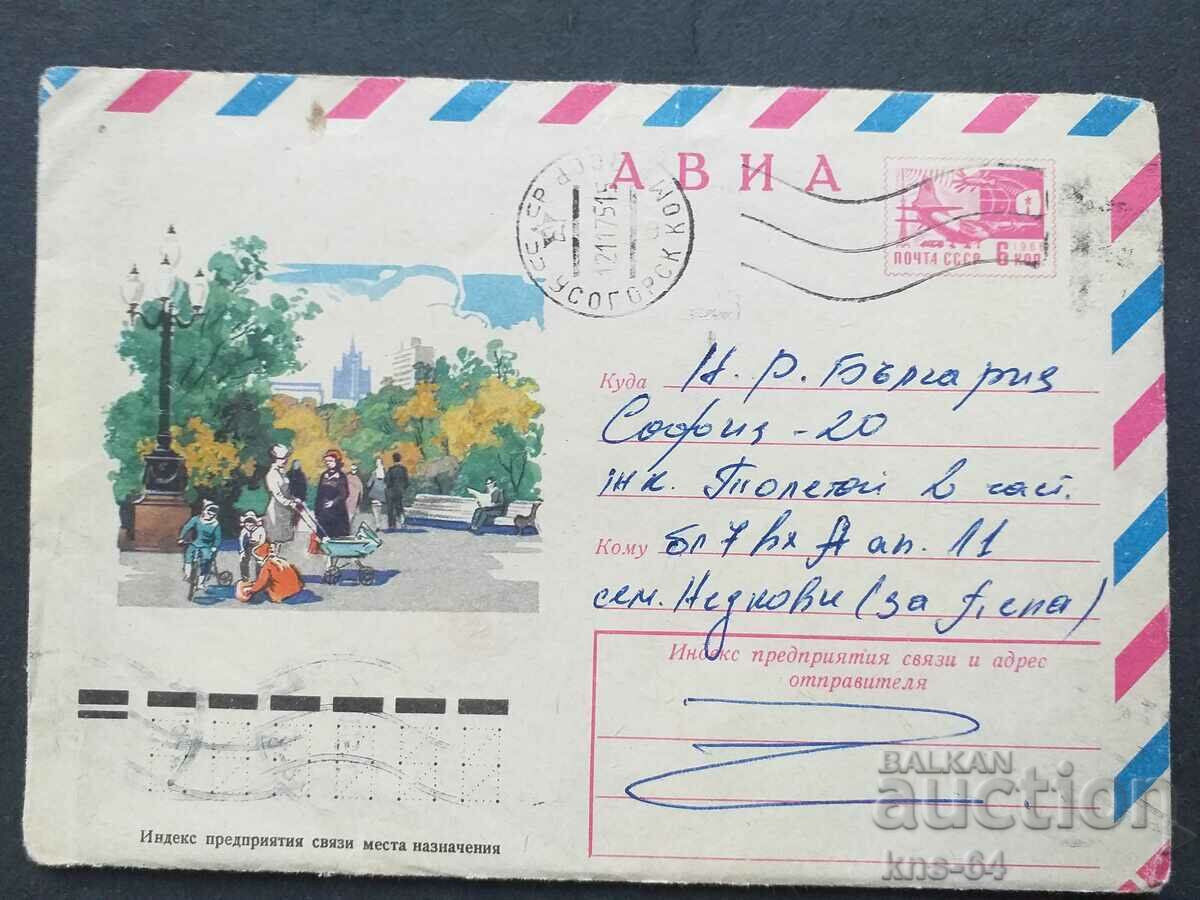 АВИА
УСОГОРСК КОМИ
12117515
1966
ПОЧТА СССР 6 КОП
Куда Н. Р. България
София - 20
жк. Толстой 2 част.
Кому бл 7 вх А ап. 11
сем. Недкови (за Лена)
Индекс предприятия связи и адрес
отправителя
Индекс предприятия связи места назначения
BALKAN
auction
kns-64